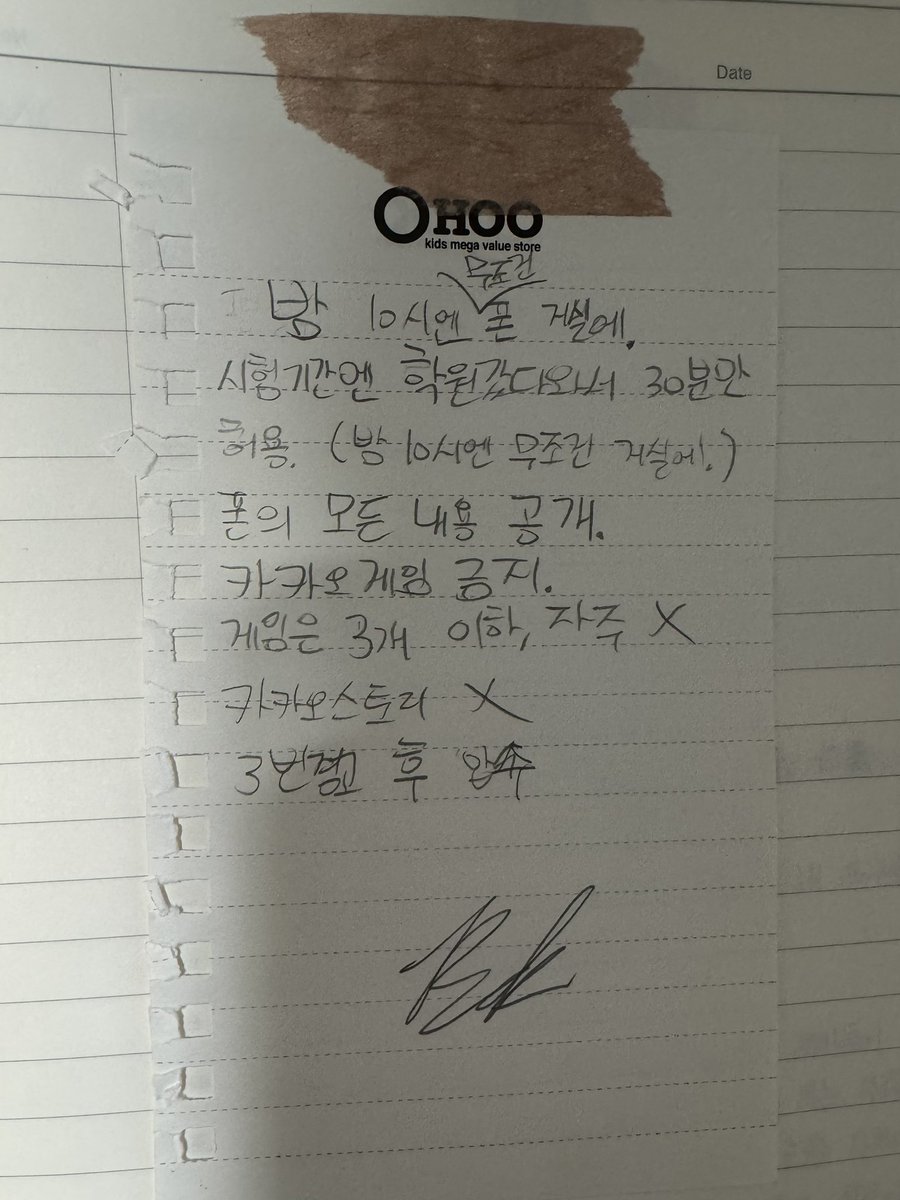 Date
OHOO
kids mega value store
무조건
밤 10시엔 폰 거실에.
시험기간엔 학원갔다와서 30분만
허용. (밤 10시엔 무조건 거실에.)
폰의 모든 내용 공개.
카카오게임 금지.
게임은 3개 이하, 자주 X
카카오스토리 X
3번경고 후 압수